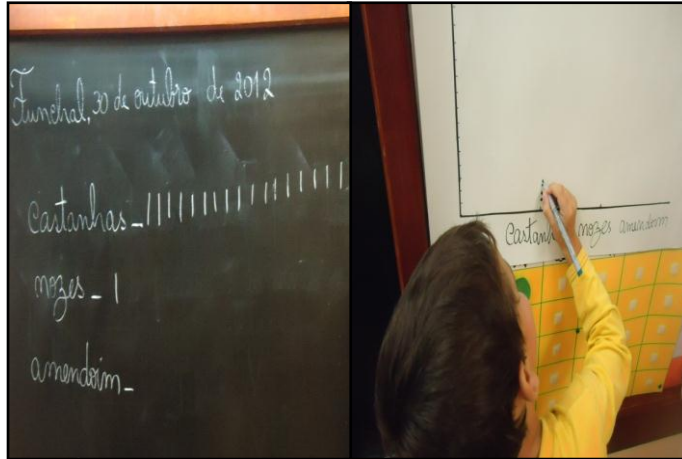 Funchal, 30 de outubro de 2012
Castanhas - |||||||||||||||||
nozes - |
amendoim -
Castanh nozes amendoim